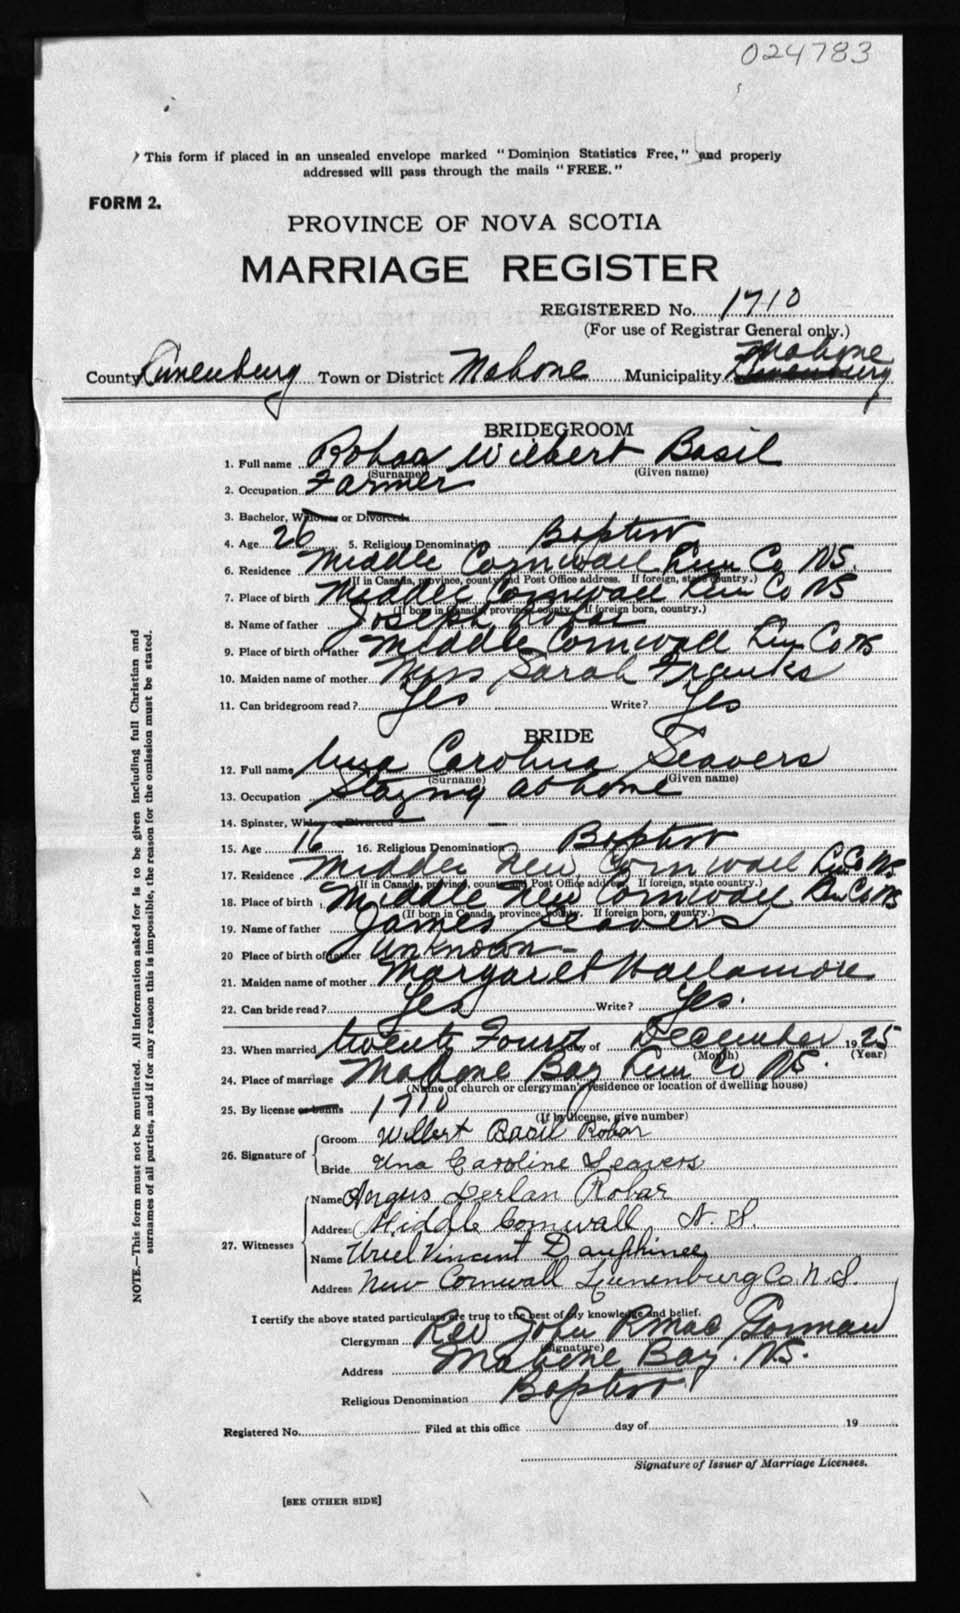 024783
This form if placed in an unsealed envelope marked "Dominion Statistics Free," and properly
addressed will pass through the mails "FREE."
FORM 2.
PROVINCE OF NOVA SCOTIA
MARRIAGE REGISTER
REGISTERED No. 1710
(For use of Registrar General only.)
Mahone
County Lunenburg Town or District Mahone Municipality Lunenburg
BRIDEGROOM
1. Full name Robar Wilbert Basil
(Surname) (Given name)
2. Occupation Farmer
3. Bachelor, Widower or Divorced
4. Age 26 5. Religious Denomination Baptist
6. Residence Middle Cornwall Lun Co NS.
(If in Canada, province, county and Post Office address. If foreign, state country.)
7. Place of birth Middle Cornwall Lun Co NS
(If born in Canada, province, county. If foreign born, country.)
8. Name of father Joseph Robar
9. Place of birth of father Middle Cornwall Lun Co NS
10. Maiden name of mother Miss Sarah Franks
11. Can bridegroom read? Yes Write? Yes
BRIDE
12. Full name Una Carolina Seavers
(Surname) (Given name)
13. Occupation Staying at home
14. Spinster, Widow or Divorced
15. Age 16 16. Religious Denomination Baptist
17. Residence Middle New Cornwall L. Co NS
(If in Canada, province, county and Post Office address. If foreign, state country.)
18. Place of birth Middle New Cornwall Lun Co NS
(If born in Canada, province, county. If foreign born, country.)
19. Name of father James Seavers
20 Place of birth of father Unknown
21. Maiden name of mother Margaret
22. Can bride read? Yes Write? Yes.
23. When married twenty Fourth day of December 1925
(Month) (Year)
24. Place of marriage Mahone Bay Lun Co NS.
(Name of church or clergyman's residence or location of dwelling house)
25. By license or banns 1710
(If by license, give number)
26. Signature of
Groom Wilbert Basil Robar
Bride Una Caroline Seavers
27. Witnesses
Name Angus Robar
Address Middle Cornwall N. S.
Name Uriel Vincent Dauphinee
Address New Cornwall Lunenburg Co. N.S.
I certify the above stated particulars are true to the best of my knowledge and belief.
Clergyman Rev John
(Signature)
Address Mahone Bay. NS.
Religious Denomination Baptist
Registered No. Filed at this office day of 19
Signature of Issuer of Marriage Licenses.
[SEE OTHER SIDE]
NOTE.—This form must not be mutilated. All information asked for is to be given including full Christian and
surnames of all parties, and if for any reason this is impossible, the reason for the omission must be stated.